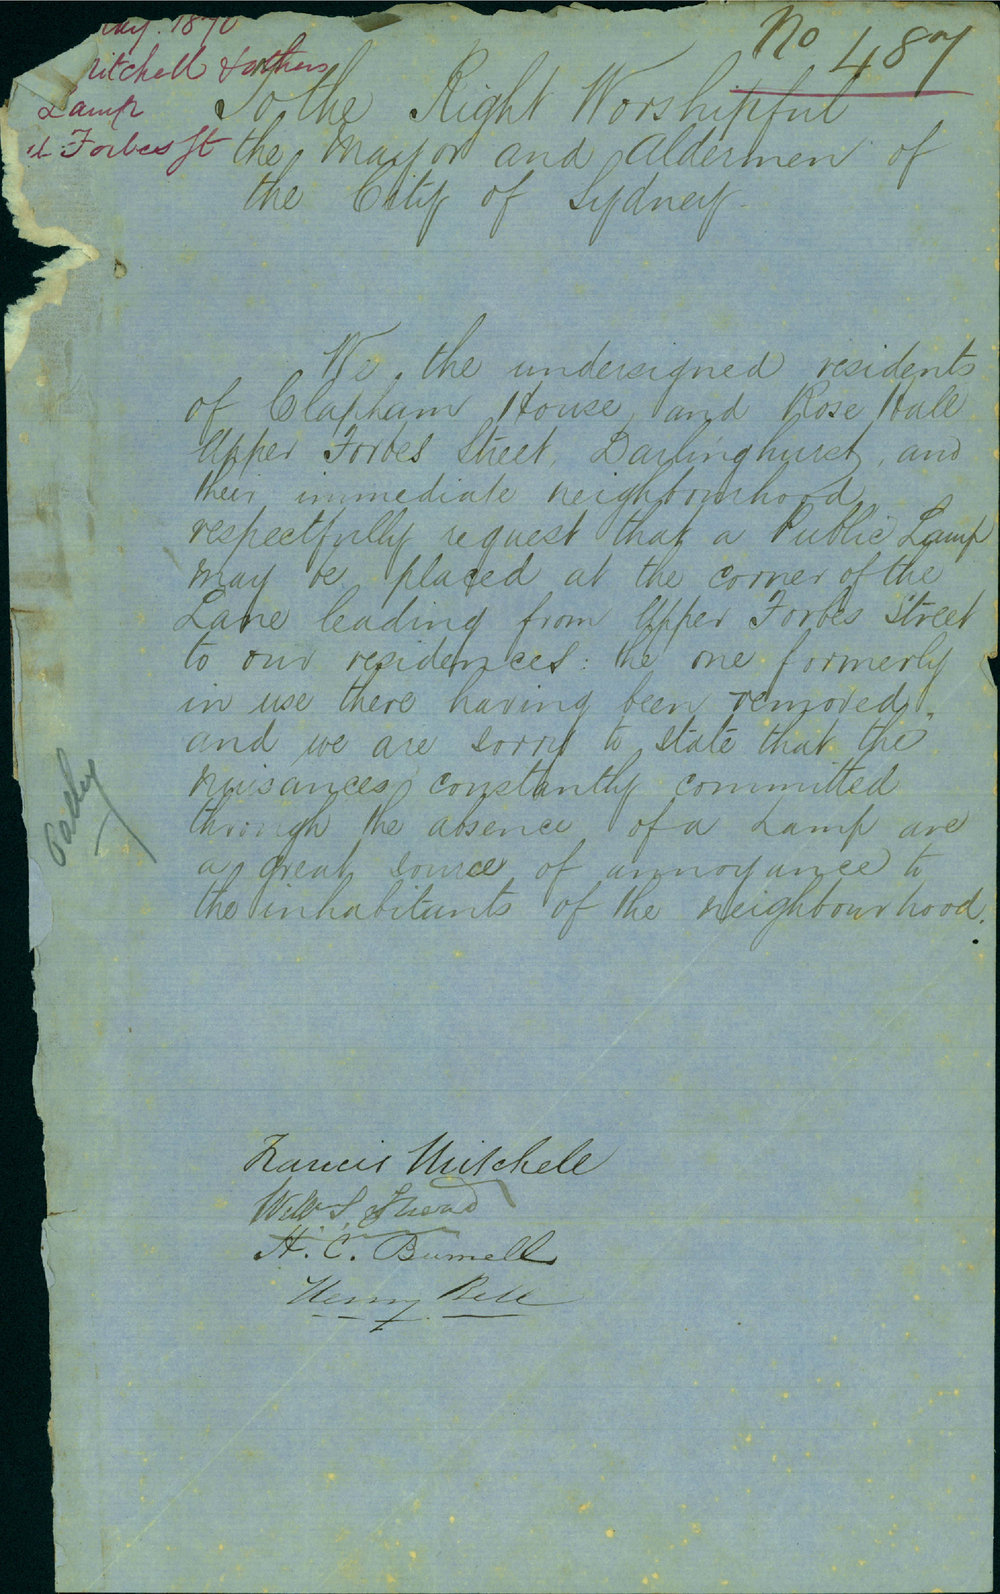 May. 1870
Mitchell & others
Lamp
Forbes St
No 487
To the Right Worshipful
the Mayor and Aldermen of
the City of Sydney.
We, the undersigned residents
of Clapham House, and Rose Hall
Upper Forbes Street, Darlinghurst, and
their immediate neighbourhood
respectfully request that a Public Lamp
may be placed at the corner of the
Lane leading from Upper Forbes Street
to our residences: the one formerly
in use there having been removed,
and we are sorry to state that the
nuisances constantly committed
through the absence of a Lamp are
a great source of annoyance to
the inhabitants of the neighbourhood.
Francis Mitchell
Willm S
H. C. Burnell
Henry Bell